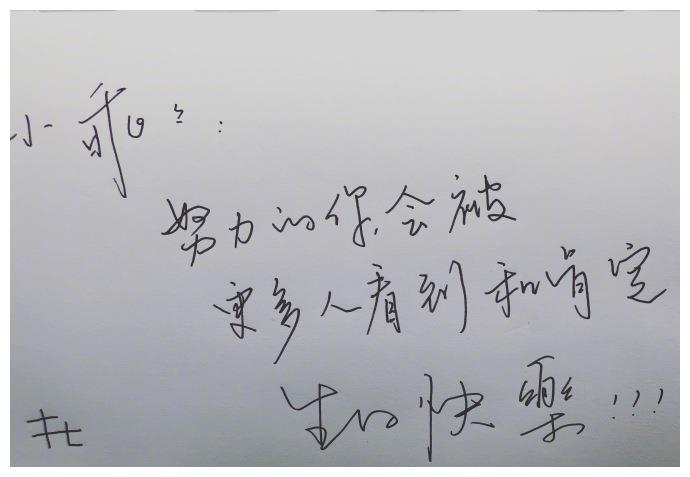 小乖：
努力的你，会被
更多人看到和肯定
生日快樂！！！